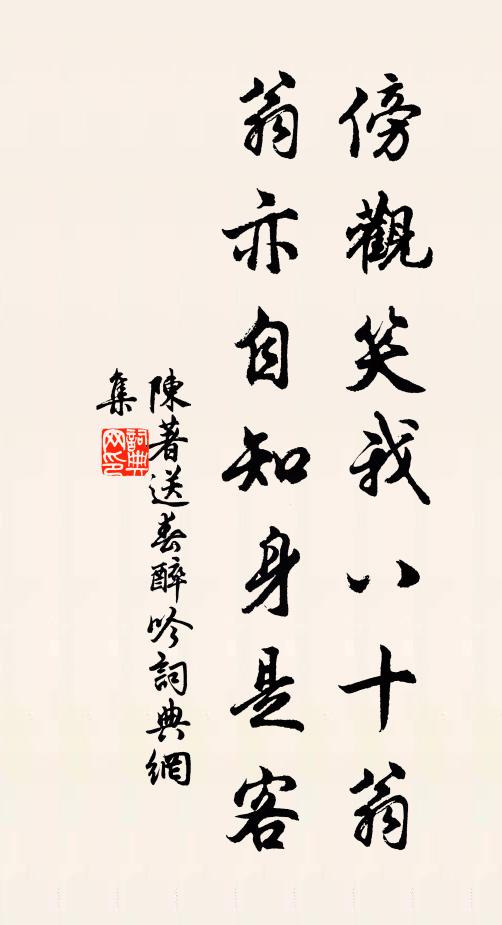 傍觀笑我八十翁
翁亦自知身是客
陳著送春醉吟詞典網
集
詞典
网印